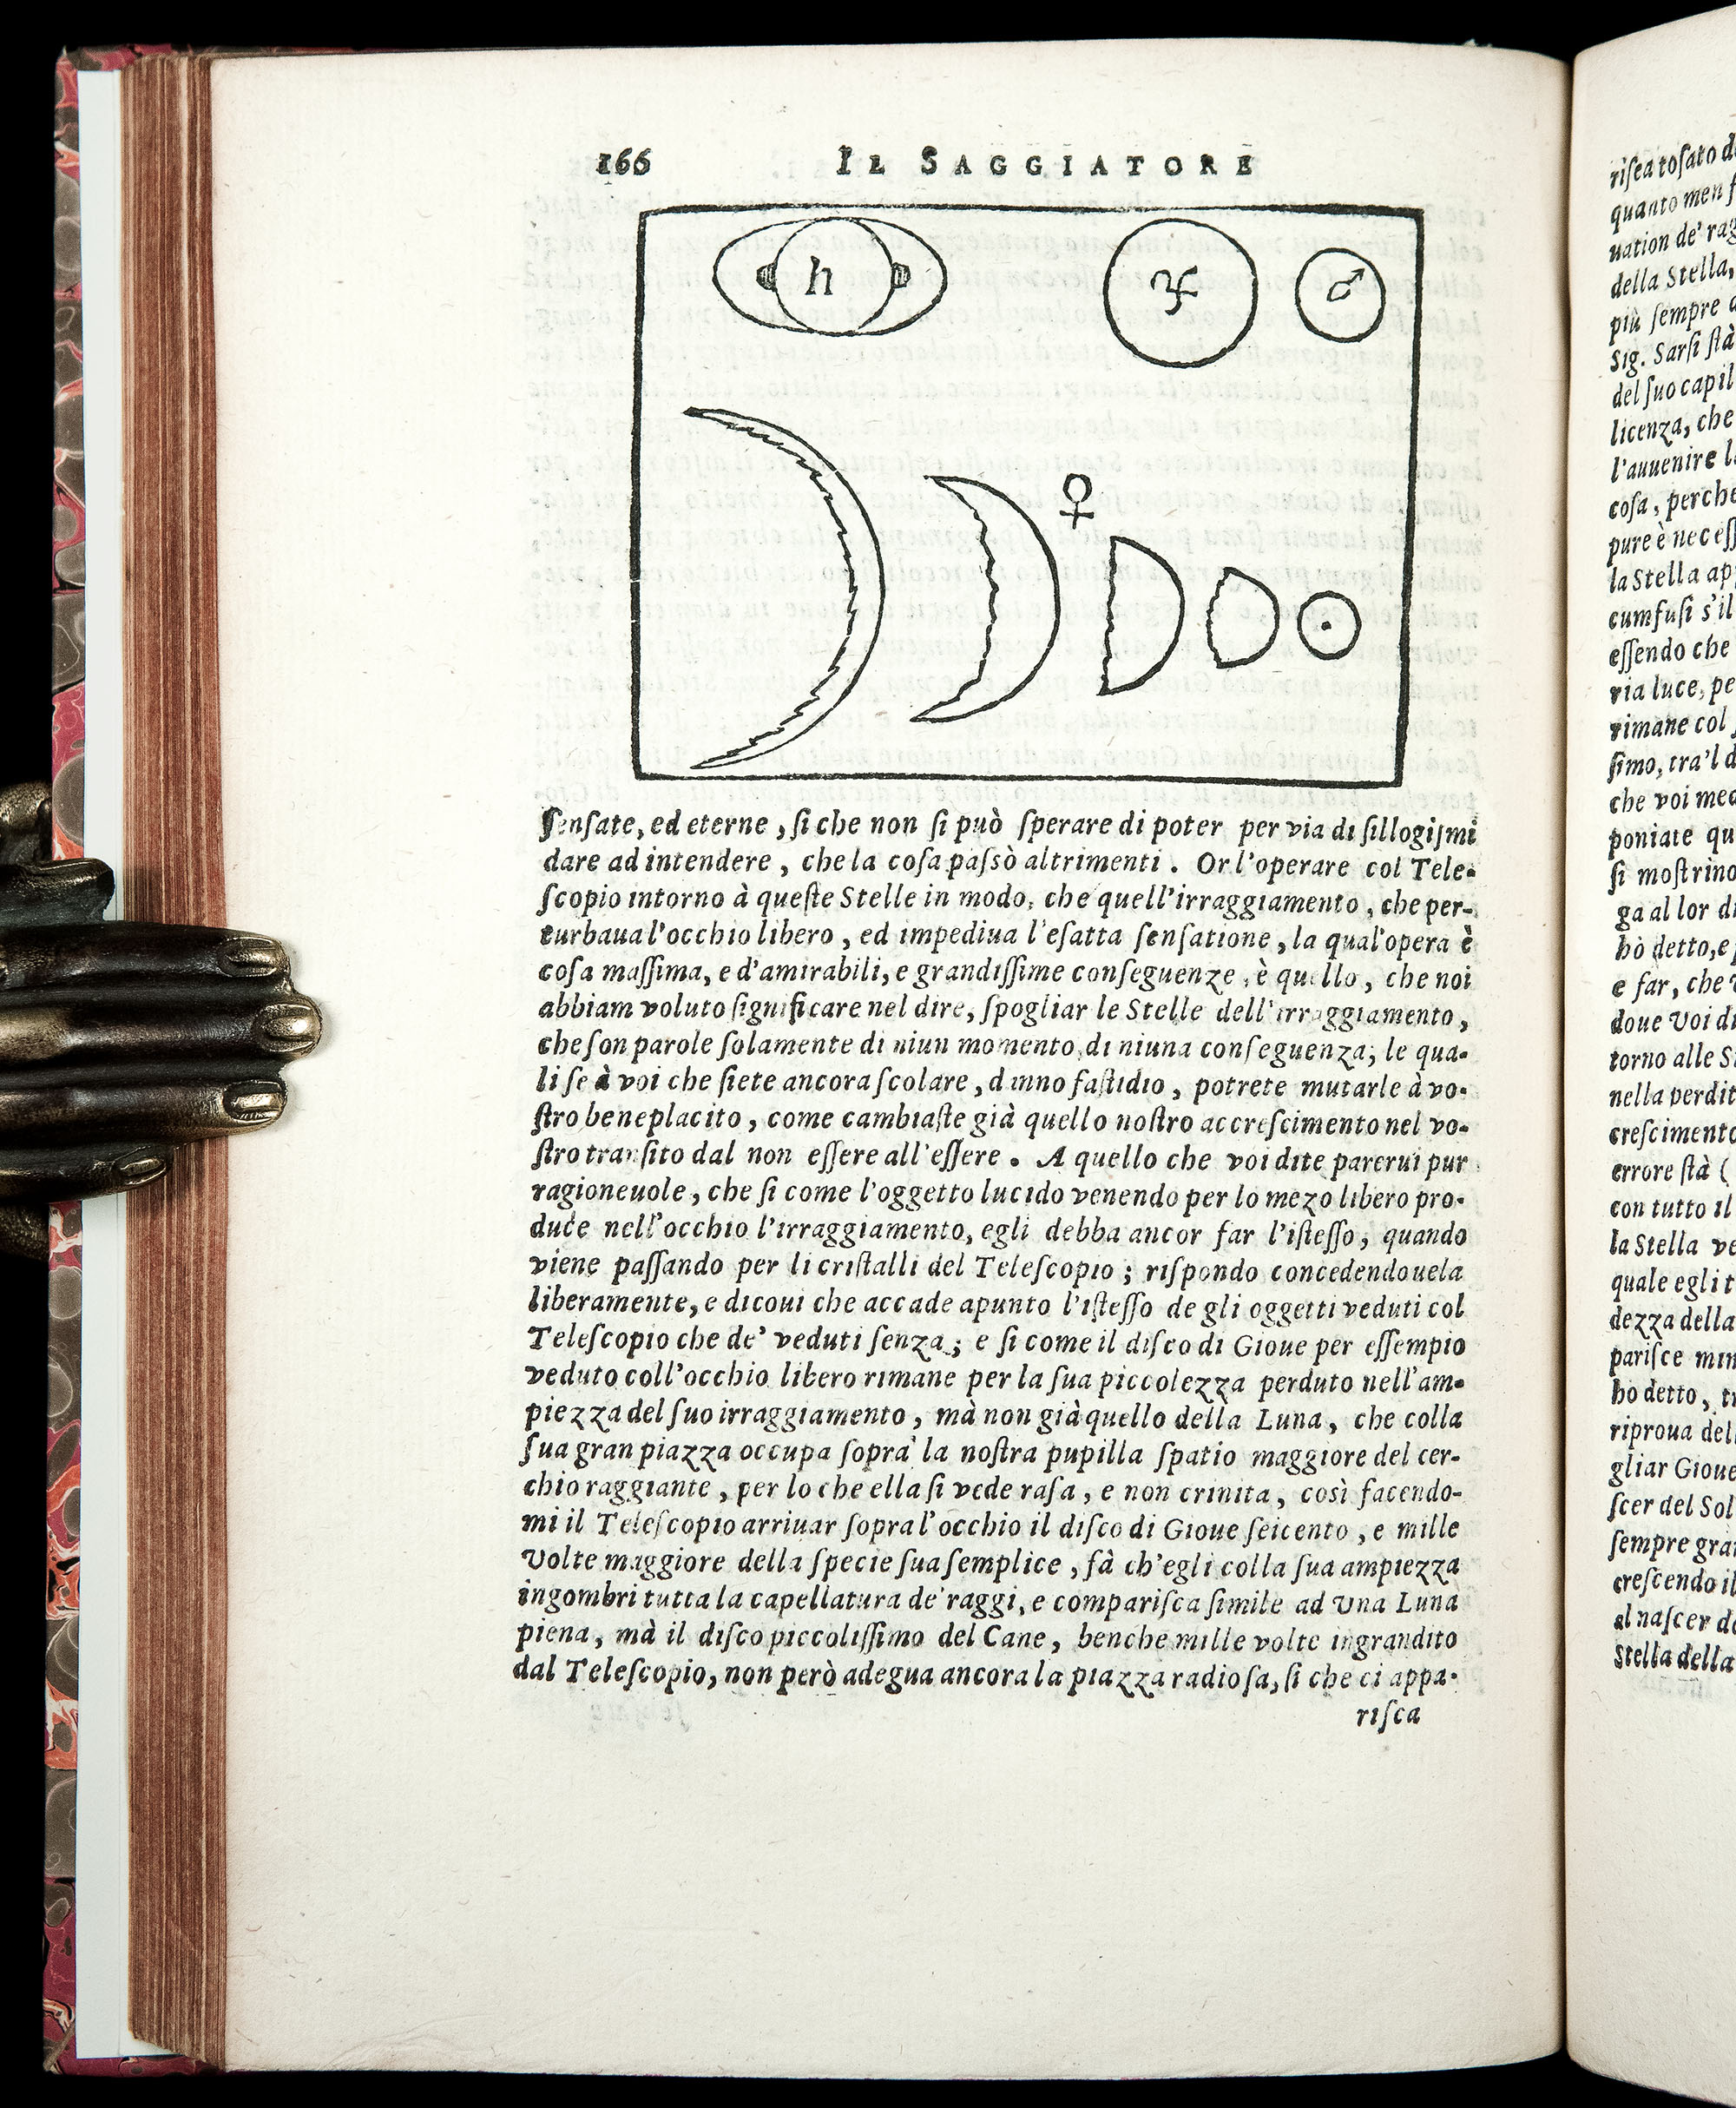 166 IL SAGGIATORE
♄ ♃ ♂
♀
ſenſate, ed eterne, ſi che non ſi può ſperare di poter per via di ſillogiſmi
dare ad intendere, che la coſa paſsò altrimenti. Or l'operare col Tele-
ſcopio intorno à queſte Stelle in modo, che quell'irraggiamento, che per-
turbaua l'occhio libero, ed impediua l'eſatta ſenſatione, la qual'opera è
coſa maſſima, e d'amirabili, e grandiſſime conſeguenze, è quello, che noi
abbiam voluto ſignificare nel dire, ſpogliar le Stelle dell'irraggiamento,
che ſon parole ſolamente di niun momento, di niuna conſeguenza; le qua-
li ſe à voi che ſiete ancora ſcolare, danno faſtidio, potrete mutarle à vo-
ſtro beneplacito, come cambiaſte già quello noſtro accreſcimento nel vo-
ſtro tranſito dal non eſſere all'eſſere. A quello che voi dite parerui pur
ragioneuole, che ſi come l'oggetto lucido venendo per lo mezo libero pro-
duce nell'occhio l'irraggiamento, egli debba ancor far l'iſteſſo, quando
viene paſſando per li criſtalli del Teleſcopio; riſpondo concedendouela
liberamente, e dicoui che accade apunto l'iſteſſo de gli oggetti veduti col
Teleſcopio che de' veduti ſenza; e ſi come il diſco di Gioue per eſſempio
veduto coll'occhio libero rimane per la ſua piccolezza perduto nell'am-
piezza del ſuo irraggiamento, mà non già quello della Luna, che colla
ſua gran piazza occupa ſopra la noſtra pupilla ſpatio maggiore del cer-
chio raggiante, per lo che ella ſi vede raſa, e non crinita, così facendo-
mi il Teleſcopio arriuar ſopra l'occhio il diſco di Gioue ſeicento, e mille
volte maggiore della ſpecie ſua ſemplice, fà ch'egli colla ſua ampiezza
ingombri tutta la capellatura de' raggi, e compariſca ſimile ad vna Luna
piena, mà il diſco piccoliſſimo del Cane, benche mille volte ingrandito
dal Teleſcopio, non però adegua ancora la piazza radioſa, ſi che ci appa-
riſca
riſca toſato
quanto men
uation de'
della Stella,
più ſempre
Sig. Sarſi ſtà
del ſuo
licenza, che
l'auuenire
coſa, perche
pure è
la Stella
cumfuſi s'il
eſſendo che
ria luce,
rimane col
ſimo, tra'l
che voi
poniate
ſi moſtrino
ga al lor
hò detto, e
e far, che
doue voi
torno alle
nella
creſcimento
errore ſtà (
con tutto il
la Stella
quale egli
dezza della
pariſce
ho detto,
riproua
gliar Gioue
ſcer del Sol
ſempre
creſcendo
al naſcer
Stella della